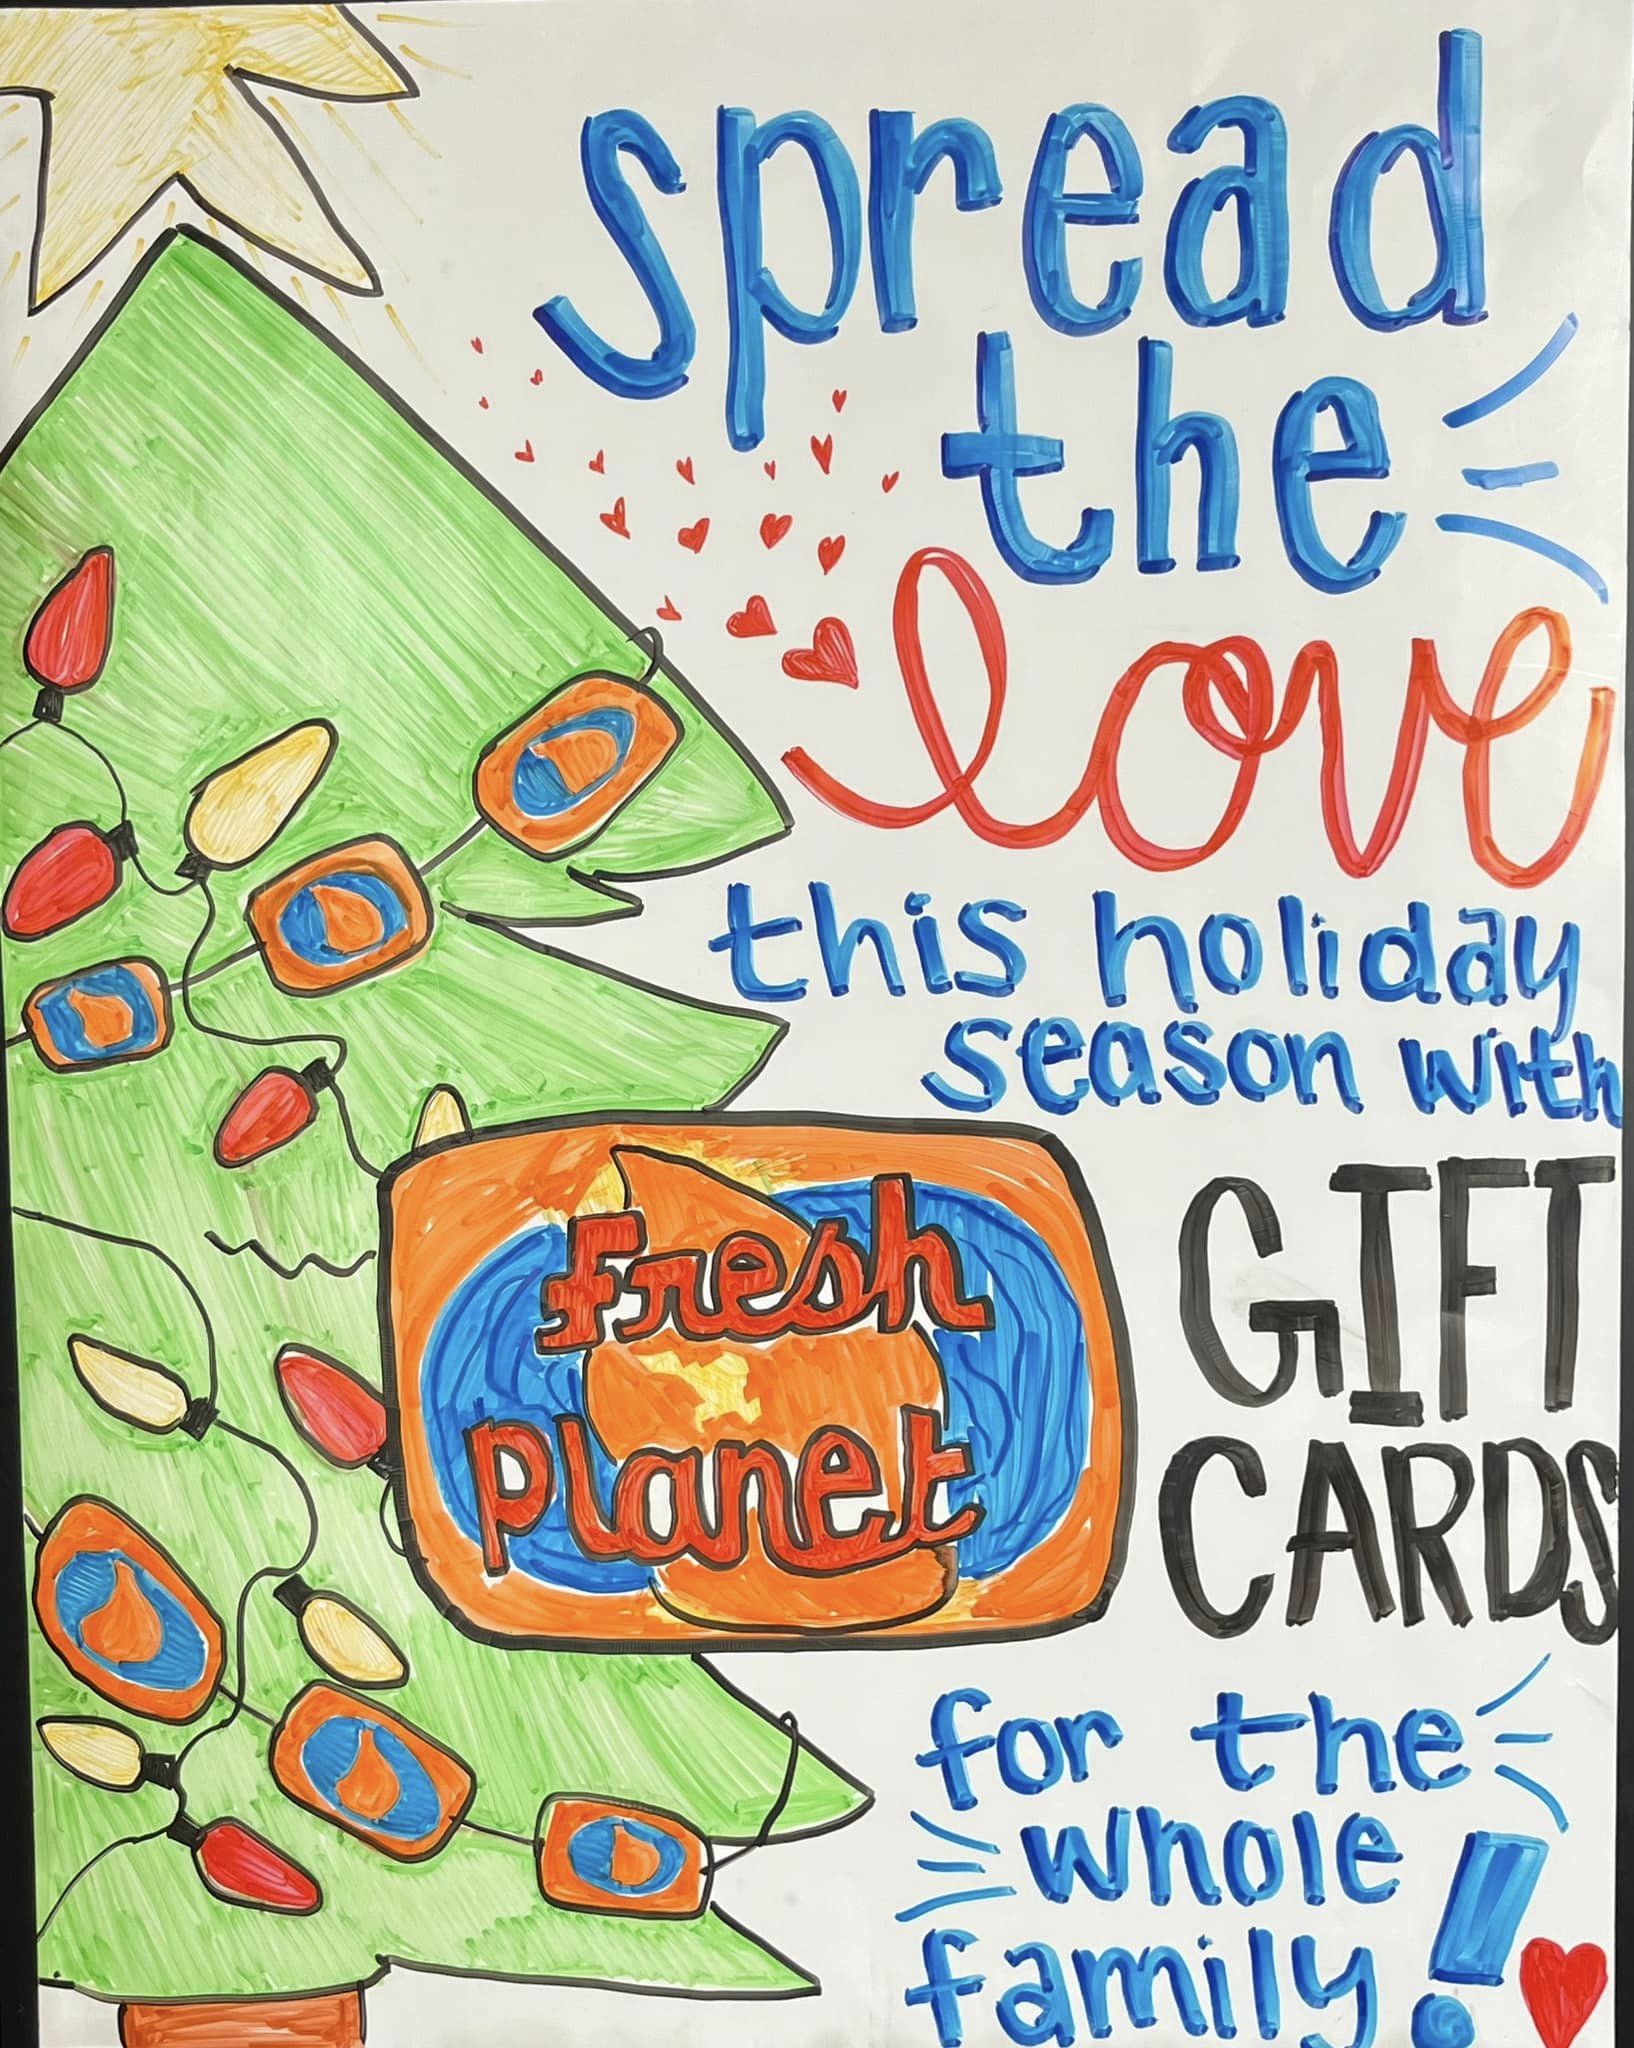 spread
the
love
this holiday
season with
Fresh
Planet
GIFT
CARDS
for the
whole
family!